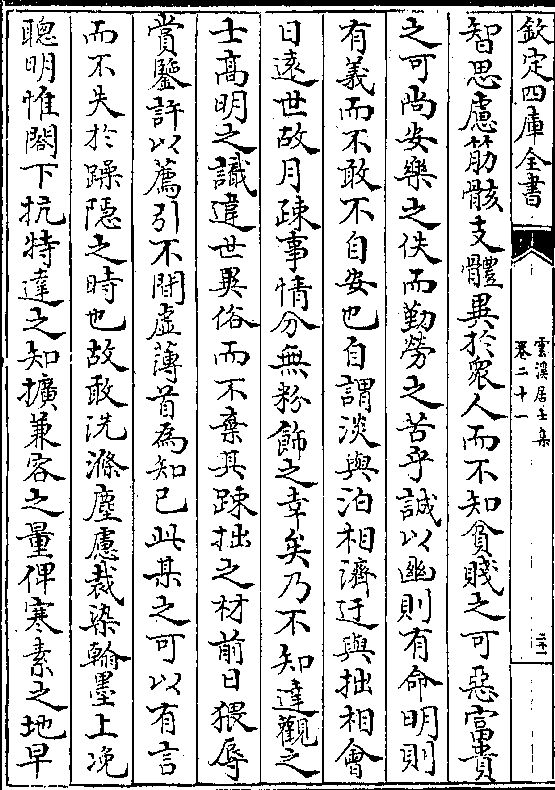 欽定四庫全書
雲溪居士集
卷二十一
二十一
智思慮筋骸支體異於衆人而不知貧賤之可惡富貴
之可尚安樂之佚而勤勞之苦乎誠以幽則有命明則
有義而不敢不自安也自謂淡與泊相濟迂與拙相會
日逺世故月踈事情分無粉飾之幸矣乃不知達觀之
士髙明之識違世異俗而不棄其踈拙之材前日猥辱
賞鑒許以薦引不間虚薄首為知已此某之可以有言
而不失於躁隠之時也故敢洗滌塵慮裁染翰墨上浼
聰明惟閤下抗特達之知擴兼容之量俾寒素之地早